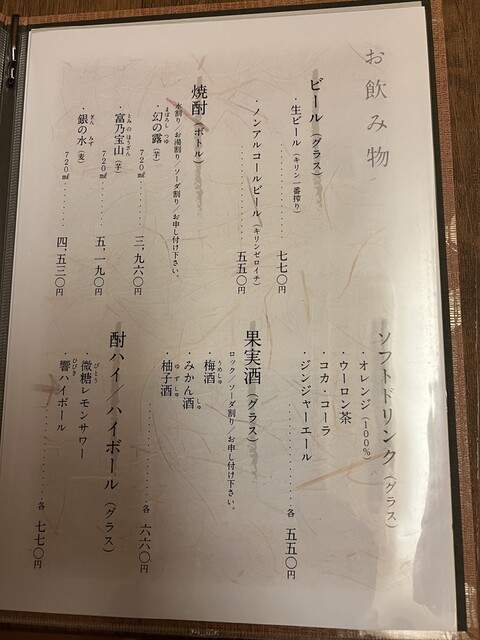 お飲み物
ビール（グラス）
・生ビール（キリン一番搾り）・・・・・・七七〇円
・ノンアルコールビール（キリンゼロイチ）・・・・・・五五〇円
焼酎（ボトル）
水割り／お湯割り／ソーダ割り／お申し付け下さい。
・幻の露（芋）まぼろし つゆ
720㎖・・・・・・三、九六〇円
・富乃宝山（芋）とみ の ほうざん
720㎖・・・・・・五、一九〇円
・銀の水（麦）ぎん みず
720㎖・・・・・・四、五三〇円
ソフトドリンク（グラス）
・オレンジ（100％）
・ウーロン茶
・コカ・コーラ
・ジンジャーエール・・・・・・各 五五〇円
果実酒（グラス）
ロック／ソーダ割り／お申し付け下さい。
梅酒 うめしゅ
・みかん酒 しゅ
・柚子酒 ゆ ず しゅ・・・・・・各 六六〇円
酎ハイ／ハイボール（グラス）
・微糖レモンサワー びとう
・響ハイボール ひびき・・・・・・各 七七〇円